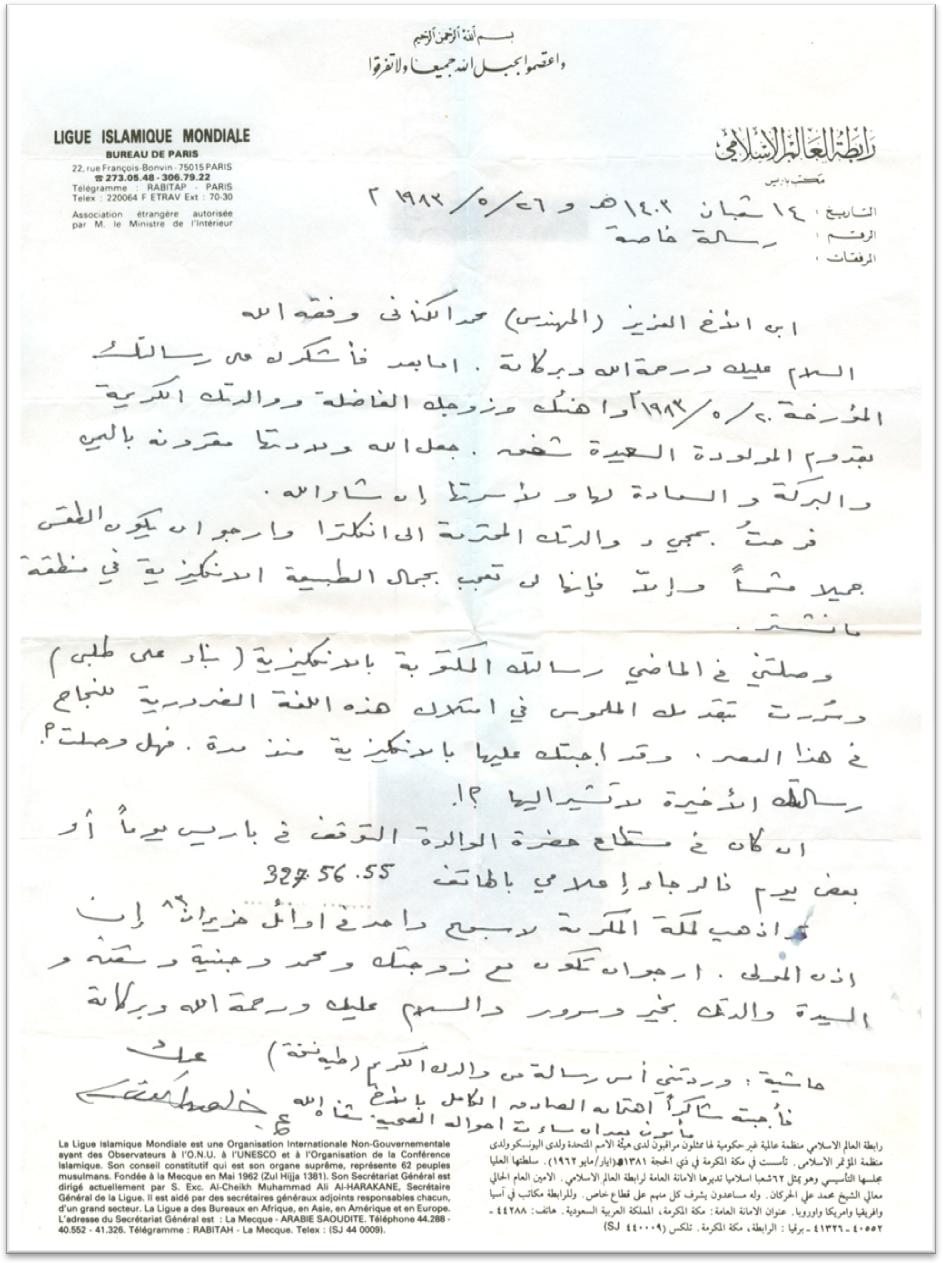 بسم الله الرحمن الرحيم
واعتصموا بحبل الله جميعا ولا تفرقوا
LIGUE ISLAMIQUE MONDIALE
BUREAU DE PARIS
22, rue François-Bonvin - 75015 PARIS
☎ 273.05.48 - 306.79.22
Télégramme : RABITAP - PARIS
Telex : 220064 F ETRAV Ext : 70-30
Association étrangère autorisée
par M. le Ministre de l'Intérieur
رابطة العالم الإسلامي
مكتب باريس
التاريخ : ١٤ شعبان ١٤٠٣ هـ و ٢٦/٥/١٩٨٣ م
الرقم : رسالة خاصة
المرفقات :
ابن الأخ العزيز (المهندس) محمد الكناني وفقه الله
السلام عليك ورحمة الله وبركاته . اما بعد فأشكرك على رسالتك
المؤرخة ٢٠/٥/١٩٨٣م واهنئك وزوجك الفاضلة ووالدتك الكريمة
بقدوم المولودة السعيدة . جعل الله ولادتها مقرونه باليمن
والبركة والسعادة لها ولأسرتها إن شاء الله .
فرحتُ بمجيء والدتك المحترمة الى انكلترا وارجو ان يكون الطقس
جميلا مشمساً وإلاّ فإنها لن تعجب بجمال الطبيعة الانكليزية في منطقة
مانشستر .
وصلتني في الماضي رسالتك المكتوبة بالانكليزية (بناء على طلبي)
وسُررت بتقدمك الملموس في امتلاك هذه اللغة الضرورية للنجاح
في هذا العصر . وقد اجبتك عليها بالانكليزية منذ مدة . فهل وصلت؟
رسالتك الأخيرة لا تشير اليها ؟!.
ان كان في مستطاع حضرة الوالدة التوقف في باريس يوماً أو
بعض يوم فالرجاء إعلامي بالهاتف 327.56.55
قد اذهب لمكة المكرمة لاسبوع واحد في اوائل حزيران ٨٣ إن
اذن المولى . ارجو ان تكون مع زوجتك ومحمد و و
السيدة والدتك بخير وسرور والسلام عليك ورحمة الله وبركاته
عمك
حاشية : وردتني أمس رسالة من والدك الكريم
فأجبته شاكراً اهتمامه الصادق الكامل بالأخ
احواله الصحية شفاه الله
La Ligue Islamique Mondiale est une Organisation Internationale Non-Gouvernementale
ayant des Observateurs à l'O.N.U. à l'UNESCO et à l'Organisation de la Conférence
Islamique. Son conseil constitutif qui est son organe suprême, représente 62 peuples
musulmans. Fondée à la Mecque en Mai 1962 (Zul Hijja 1381). Son Secrétariat Général est
dirigé actuellement par S. Exc. Al-Cheikh Muhammad Ali Al-HARAKANE, Secrétaire
Général de la Ligue. Il est aidé par des secrétaires généraux adjoints responsables chacun,
d'un grand secteur. La Ligue a des Bureaux en Afrique, en Asie, en Amérique et en Europe.
L'adresse du Secrétariat Général est : La Mecque - ARABIE SAOUDITE. Téléphone 44.288 -
40.552 - 41.326. Télégramme : RABITAH - La Mecque. Telex : (SJ 44 0009).
رابطة العالم الاسلامي منظمة عالمية غير حكومية لها ممثلون مراقبون لدى هيئة الامم المتحدة ولدى اليونسكو ولدى
منظمة المؤتمر الاسلامي. تأسست في مكة المكرمة في ذي الحجة ١٣٨١هـ (ايار/مايو ١٩٦٢). سلطتها العليا
مجلسها التأسيسي وهو يمثل ٦٢ شعبا اسلاميا تديرها الامانة العامة لرابطة العالم الاسلامي. الامين العام الحالي
معالي الشيخ محمد علي الحركان. وله مساعدون يشرف كل منهم على قطاع خاص. وللرابطة مكاتب في آسيا
وافريقيا وامريكا واوروبا. عنوان الامانة العامة: مكة المكرمة، المملكة العربية السعودية. هاتف: ٤٤٢٨٨ -
٤٠٥٥٢ - ٤١٣٢٦ - برقيا : الرابطة، مكة المكرمة. تلكس (SJ ٤٤٠٠٠٩)